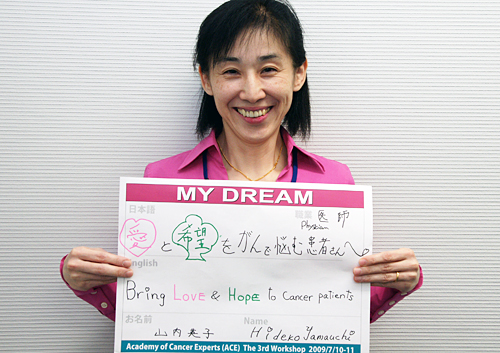 MY DREAM
日本語
職業 医師
Physician
愛 と 希望 を がんで悩む患者さんへ
English
Bring Love & Hope to Cancer patients
お名前 Name
山内英子 Hideko Yamauchi
Academy of Cancer Experts (ACE) The 3rd Workshop 2009/7/10-11